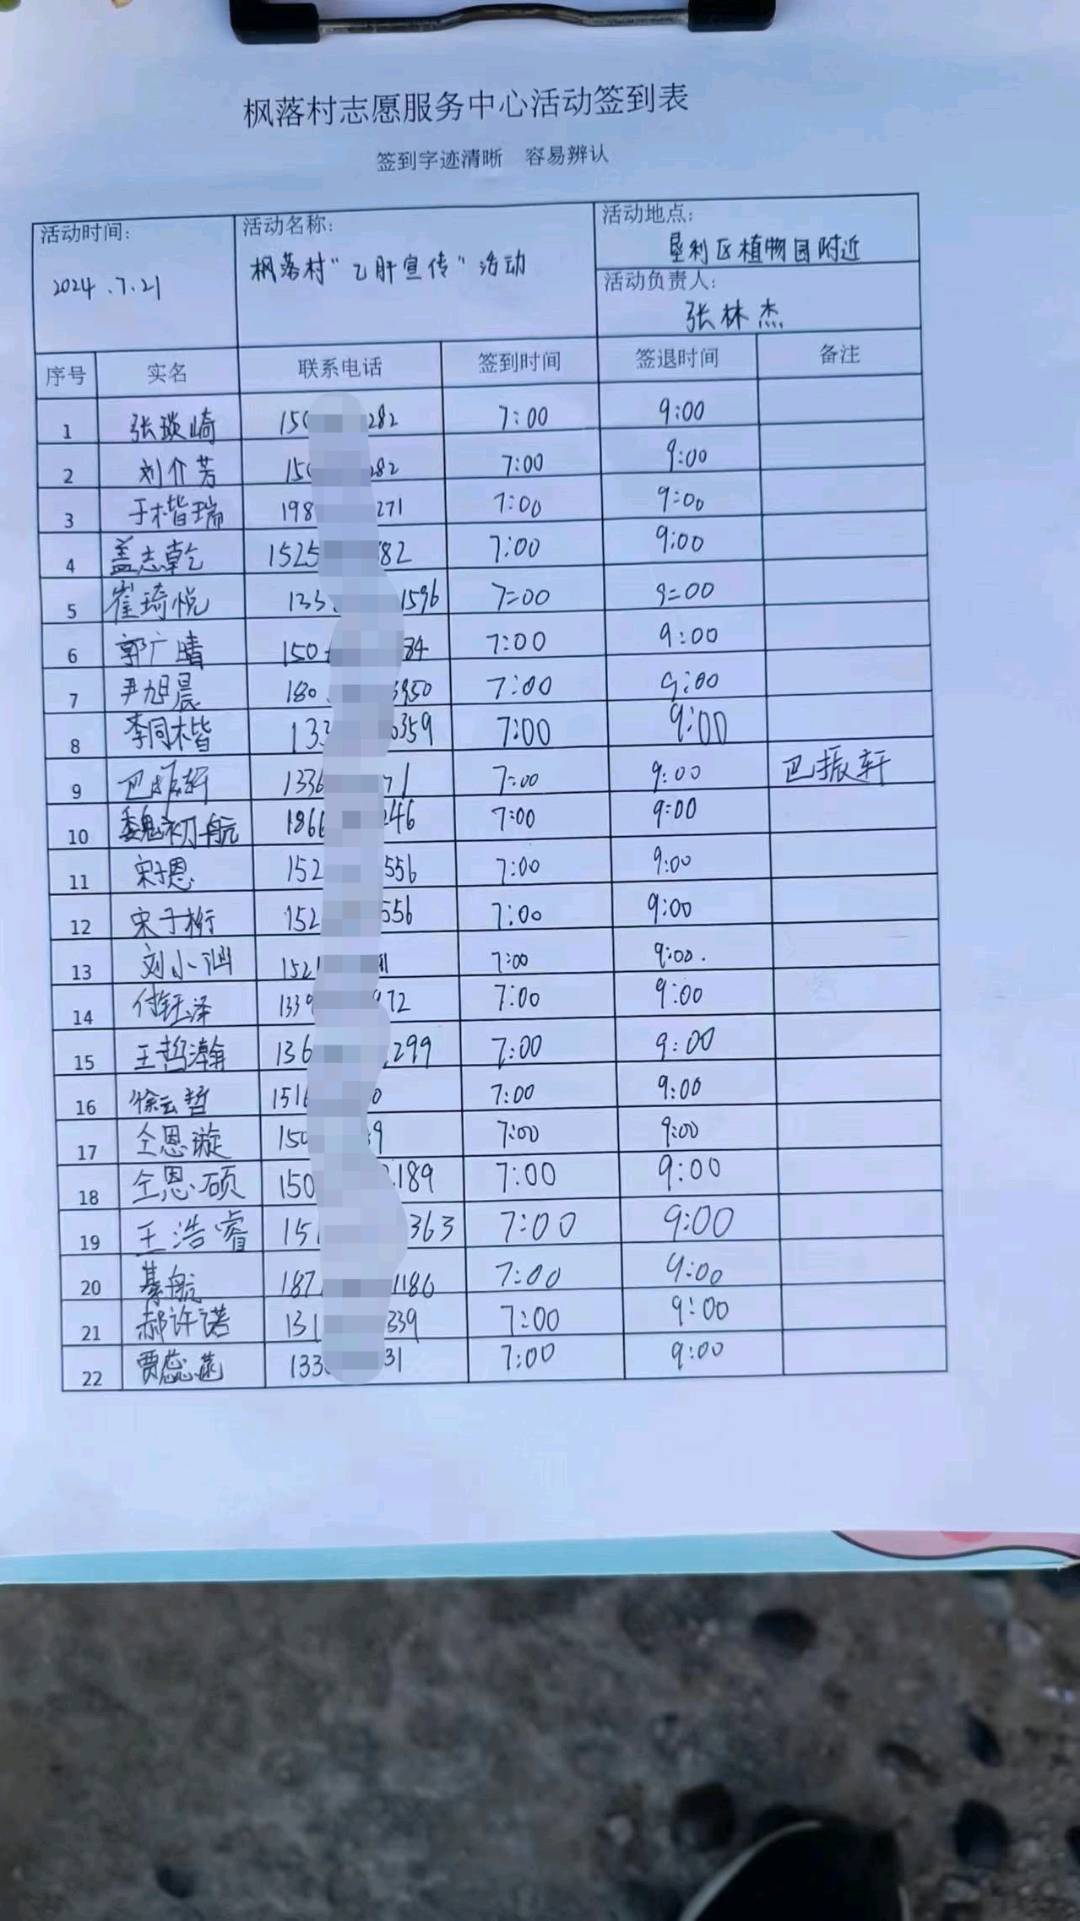 枫落村志愿服务中心活动签到表
签到字迹清晰 容易辨认
活动时间: 活动名称: 活动地点:
2024.7.21 枫落村“乙肝宣传”活动 垦利区植物园附近
活动负责人:
张林杰
序号 实名 联系电话 签到时间 签退时间 备注
1 张琰崎 150 282 7:00 9:00
2 刘介芳 150 282 7:00 9:00
3 于楷瑞 198 271 7:00 9:00
4 盖志乾 1525 82 7:00 9:00
5 崔琦悦 133 1596 7=00 9=00
6 郭广晴 150 84 7:00 9:00
7 尹旭晨 180 3950 7:00 9:00
8 李同楷 133 0359 7:00 9:00
9 巴振轩 1336 71 7:00 9:00 巴振轩
10 魏初航 1866 246 7:00 9:00
11 宋子恩 152 556 7:00 9:00
12 宋子桁 152 556 7:00 9:00
13 刘小涵 1521 7:00 9:00.
14 付钰泽 1339 972 7:00 9:00
15 王哲瀚 136 299 7:00 9:00
16 徐云哲 1516 0 7:00 9:00
17 仝恩璇 150 9 7:00 9:00
18 仝恩硕 150 189 7:00 9:00
19 王浩睿 151 363 7:00 9:00
20 綦航 187 1186 7:00 9:00
21 郝许诺 131 339 7:00 9:00
22 贾蕊菡 133 31 7:00 9:00